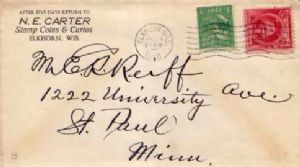 AFTER FIVE DAYS RETURN TO
N. E. CARTER
Stamp Coins & Curios
ELKHORN, WIS.
M. E. R. Reiff
1222 University Ave.
St. Paul
Minn.